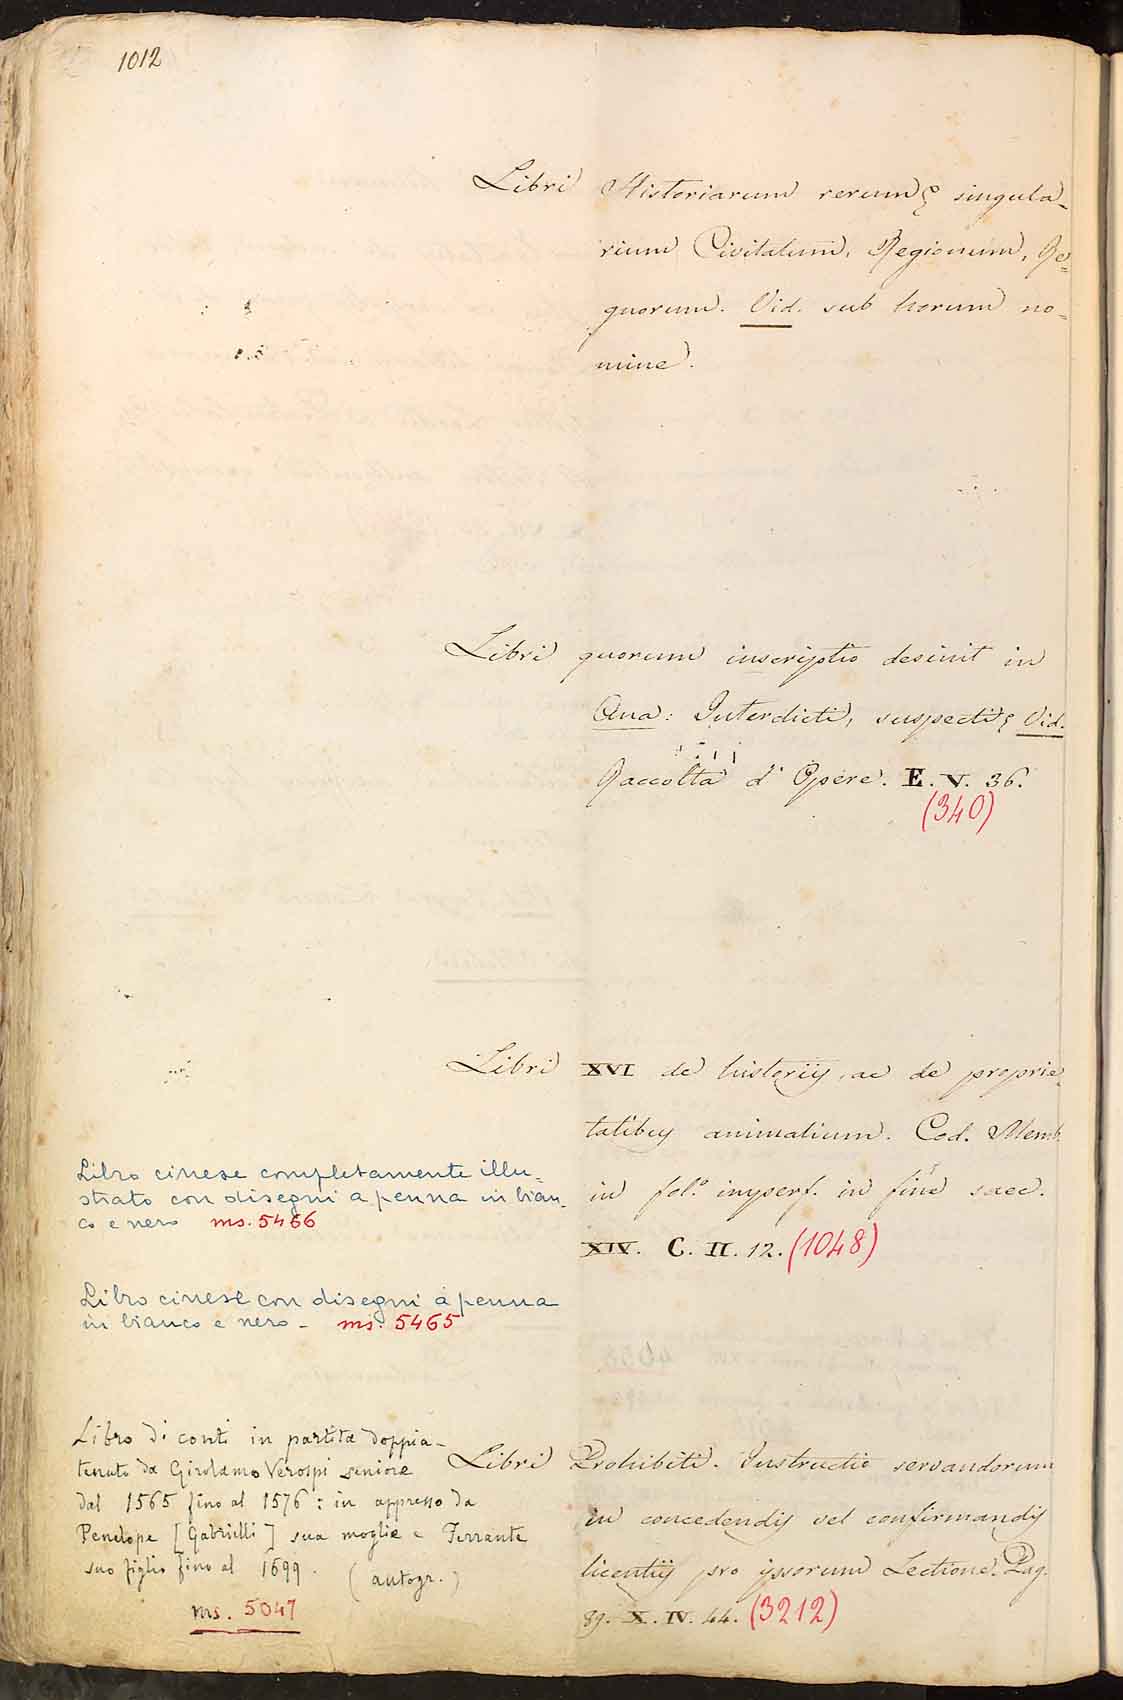 1012
Libri Historiarum rerumq singula-
rium Civitatum, Regionum, Re=
gnorum. Vid. sub horum no=
mine.
Libri quorum inscriptio desinit in
Ana: Interdicti, suspecti Vid.
Raccolta d' Opere. E. V. 36.
(340)
Libri XVI de historijs, ac de proprie
tatibus animalium. Cod. Memb.
in fol.° imperf. in fine saec.
XIV. C. II. 12. (1048)
Libro cinese completamente illu-
strato con disegni a penna in bian-
co e nero ms. 5466
Libro cinese con disegni a penna
in bianco e nero - ms. 5465
Libro di conti in partita doppia-
tenuto da Girolamo Verospi seniore
dal 1565 fino al 1576: in appresso da
Penelope [Gabrielli] sua moglie e Ferrante
suo figlio fino al 1699. (autogr.)
ms. 5047
Libri Prohibiti. Instructio servandorum
in concedendis vel confirmandis
licentijs pro ipsorum Lectione. Pag.
89. X. IV. 44. (3212)